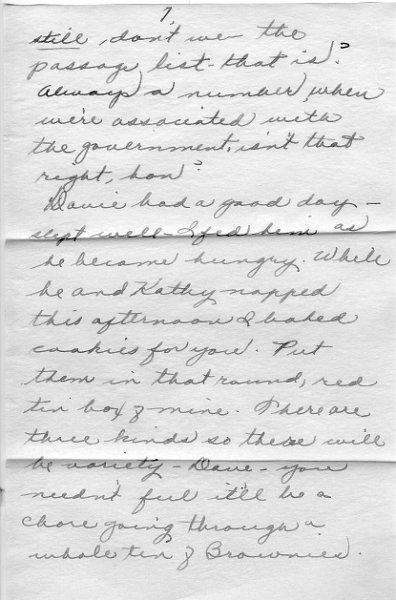 7,
still, don't we - the
passage list - that is?
Always a number, when
we're associated with
the government, isn't that
right, hon?
Davie had a good day -
slept well - I fed him as
he became hungry. While
he and Kathy napped
this afternoon I baked
cookies for you. Put
them in that round, red
tin box of mine. There are
three kinds so there will
be variety - Dave - you
needn't feel it'll be a
chore going through a
whole tin of Brownies.